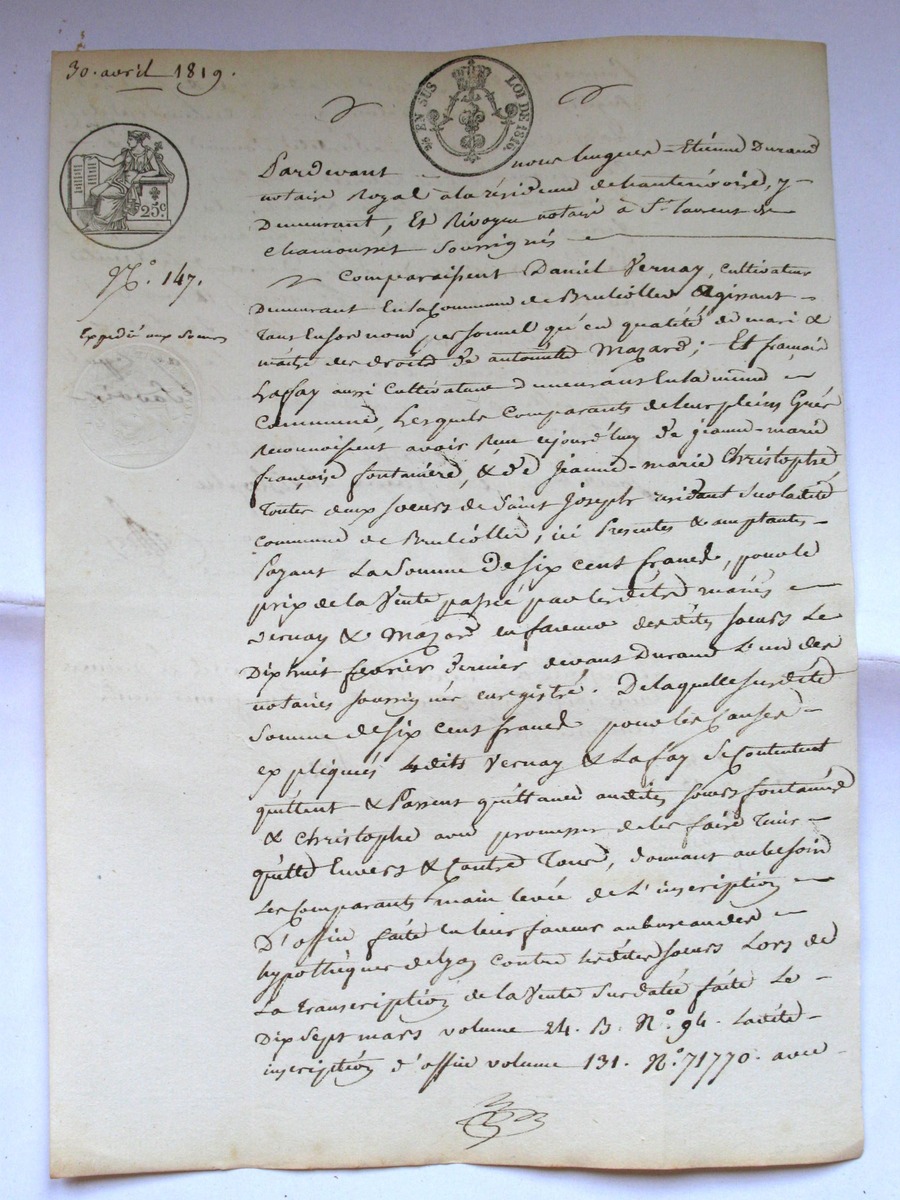 30. avril 1819.
¼ EN SUS LOI DE 1816.
25c
N.° 147.
Expedié aux Soeurs
Pardevant nous Etiénne Durand
notaire Royal à la résidence de hauterivoire, y
Demeurant, Et Rivoyre notaire à St. laurent de
Chamousset Soussignés
Comparaissent Daniel Vernay, Cultivateur
Demeurant En la Commune de Brulliolles Agissant
Tant En Son nom personnel qu'en qualité de mari &
maître des droits de antoinette Mazard; Et françois
Lafay aussi Cultivateur demeurant En la même
Commune, Lesquels Comparants de leur pleins Grés
Reconnoissent avoir Reçu cejourd'huy de jeanne-marie
françoise fontanière, & de Jeanne-marie Christophe
Toutes deux Soeurs de Saint Joseph residant Sur ladite
Commune de Brulliolles, ici Presentes & acceptantes
Payant La Somme De Six Cent francs, pour le
prix de la Vente passée par lesdits mariés
Vernay & Mazard en faveur desdites Soeurs Le
Dix huit février dernier devant Durand L'un des
notaires Soussignés enregistré. De laquelle Susdite
Somme de Six Cent francs pour les Causes
expliquées Lesdits Vernay & Lafay Se Contentent
quittent & Passent quittance auxdites Soeurs fontanière
& Christophe avec promesse de les faire Tenir
quitte Envers & Contre Tous, donnant au besoin
Les Comparants main levée de L'inscription
D'office faite en leur faveur au bureau des
hypothèques de lyon contre lesdites Soeurs Lors de
La transcription de la Vente Sus datée faite Le
Dix Sept mars volume 24. B. N.° 94. Ladite
inscription d'office volume 131. N.° 71770. avec